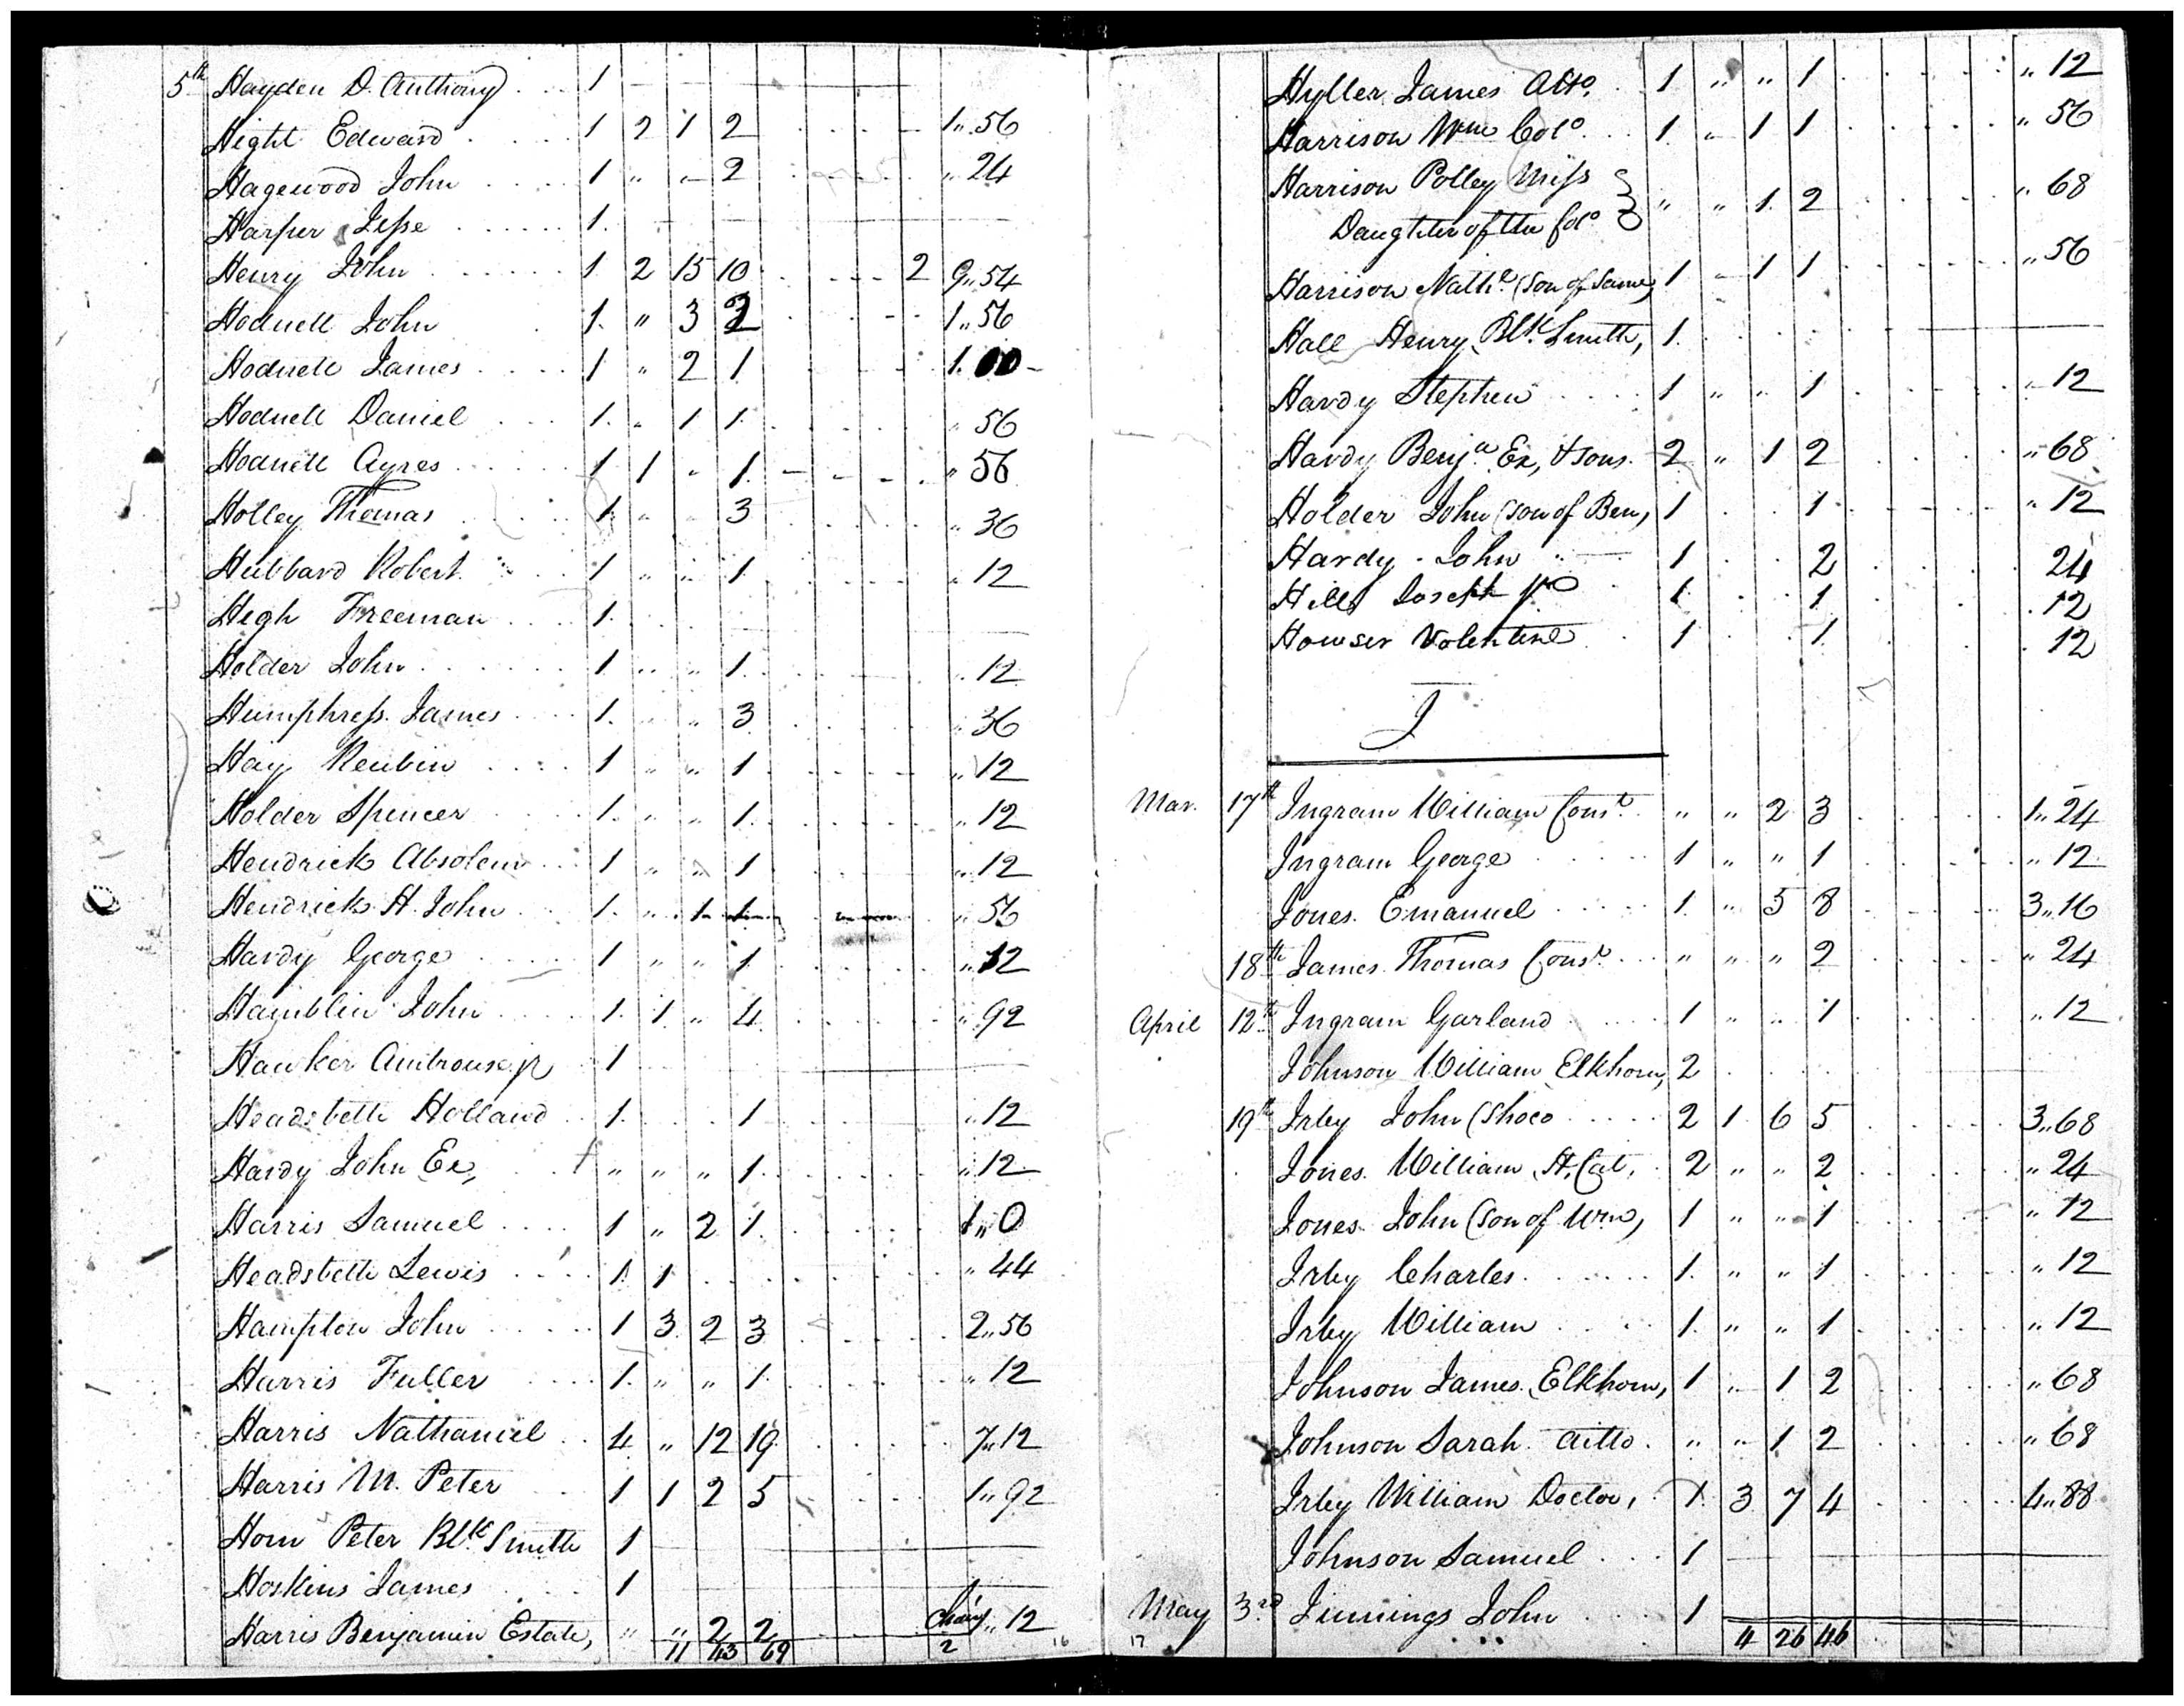 5th Hayden D. Anthony 1
Hight Edward 1 2 1 2 1" 56
Hagewood John 1 " " 2 " 24
Harper Jesse 1.
Henry John 1 2 15 10 2 9" 54
Hodnett John 1. " 3 2 1" 56
Hodnett James 1 " 2 1 1. 00
Hodnett Daniel 1. " 1 1 " 56
Hodnett Ayres 1 1 " 1. " 56
Holley Thomas 1. " " 3 " 36
Hubbard Robert 1 " " 1 " 12
High Freeman 1.
Holder John 1 " " 1. " 12
Humphress James 1. " " 3 " 36
Hay Reubin 1 " " 1 " 12
Holder Spencer 1. " " 1. " 12
Hendrick Absolem 1 " " 1 " 12
Hendrick H. John 1. " 1 1 " 56
Hardy George 1 " " 1 " 12
Hamblin John 1. 1. " 4 " 92
Hawker Ambrouse jr 1
Headsbeth Holland 1. 1 " 12
Hardy John Ex, " " " 1. " 12
Harris Samuel 1 " 2 1. 1" 0
Headsbeth Lewis 1. 1 " 44
Hampton John 1 3 2 3 2" 56
Harris Fuller 1. " " 1 " 12
Harris Nathaniel 4 " 12 19 7" 12
Harris M. Peter 1 1 2 5 1" 92
Horn Peter Blk Smith 1
Hoskins James 1
Harris Benjamin Estate, " " 2 2 " 12
11 43 69 2 16
Hyller James 1 " " 1 " 12
Harrison Wm Colo. 1. " 1 1 " 56
Harrison Polley Miss
Daughter of the Colo " " 1. 2 " 68
Harrison Nathl (son of same) 1 " 1 1 " 56
Hall Henry Blk Smith, 1.
Hardy Stephen 1 " " 1 " 12
Hardy Benja Ex, & sons. 2 " 1 2 " 68
Holder John (son of Ben, 1 1 " 12
Hardy John 1 2 24
Hill Joseph 1 1 12
Howser Volentine 1 1 12
J
Mar. 17th Ingram William Const " " 2 3 1" 24
Ingram George 1 " " 1 " 12
Jones Emanuel 1. " 5 8 3" 16
18th James Thomas Const " " " 2 " 24
April 12th Ingram Garland 1 " " 1 " 12
Johnson William Elkhorn, 2
19th Irby John (Shoco 2 1 6 5 3" 68
Jones William St. Cat, 2 " " 2 " 24
Jones John (son of Wm, 1 " " 1 " 12
Irby Charles 1. " " 1 " 12
Irby William 1. " " 1 " 12
Johnson James Elkhorn, 1 " 1 2 " 68
Johnson Sarah ditto " " 1 2 " 68
Irby William Doctor, 1. 3 7 4 4" 88
Johnson Samuel 1
May 3rd Jinnings John 1
17 4 26 46